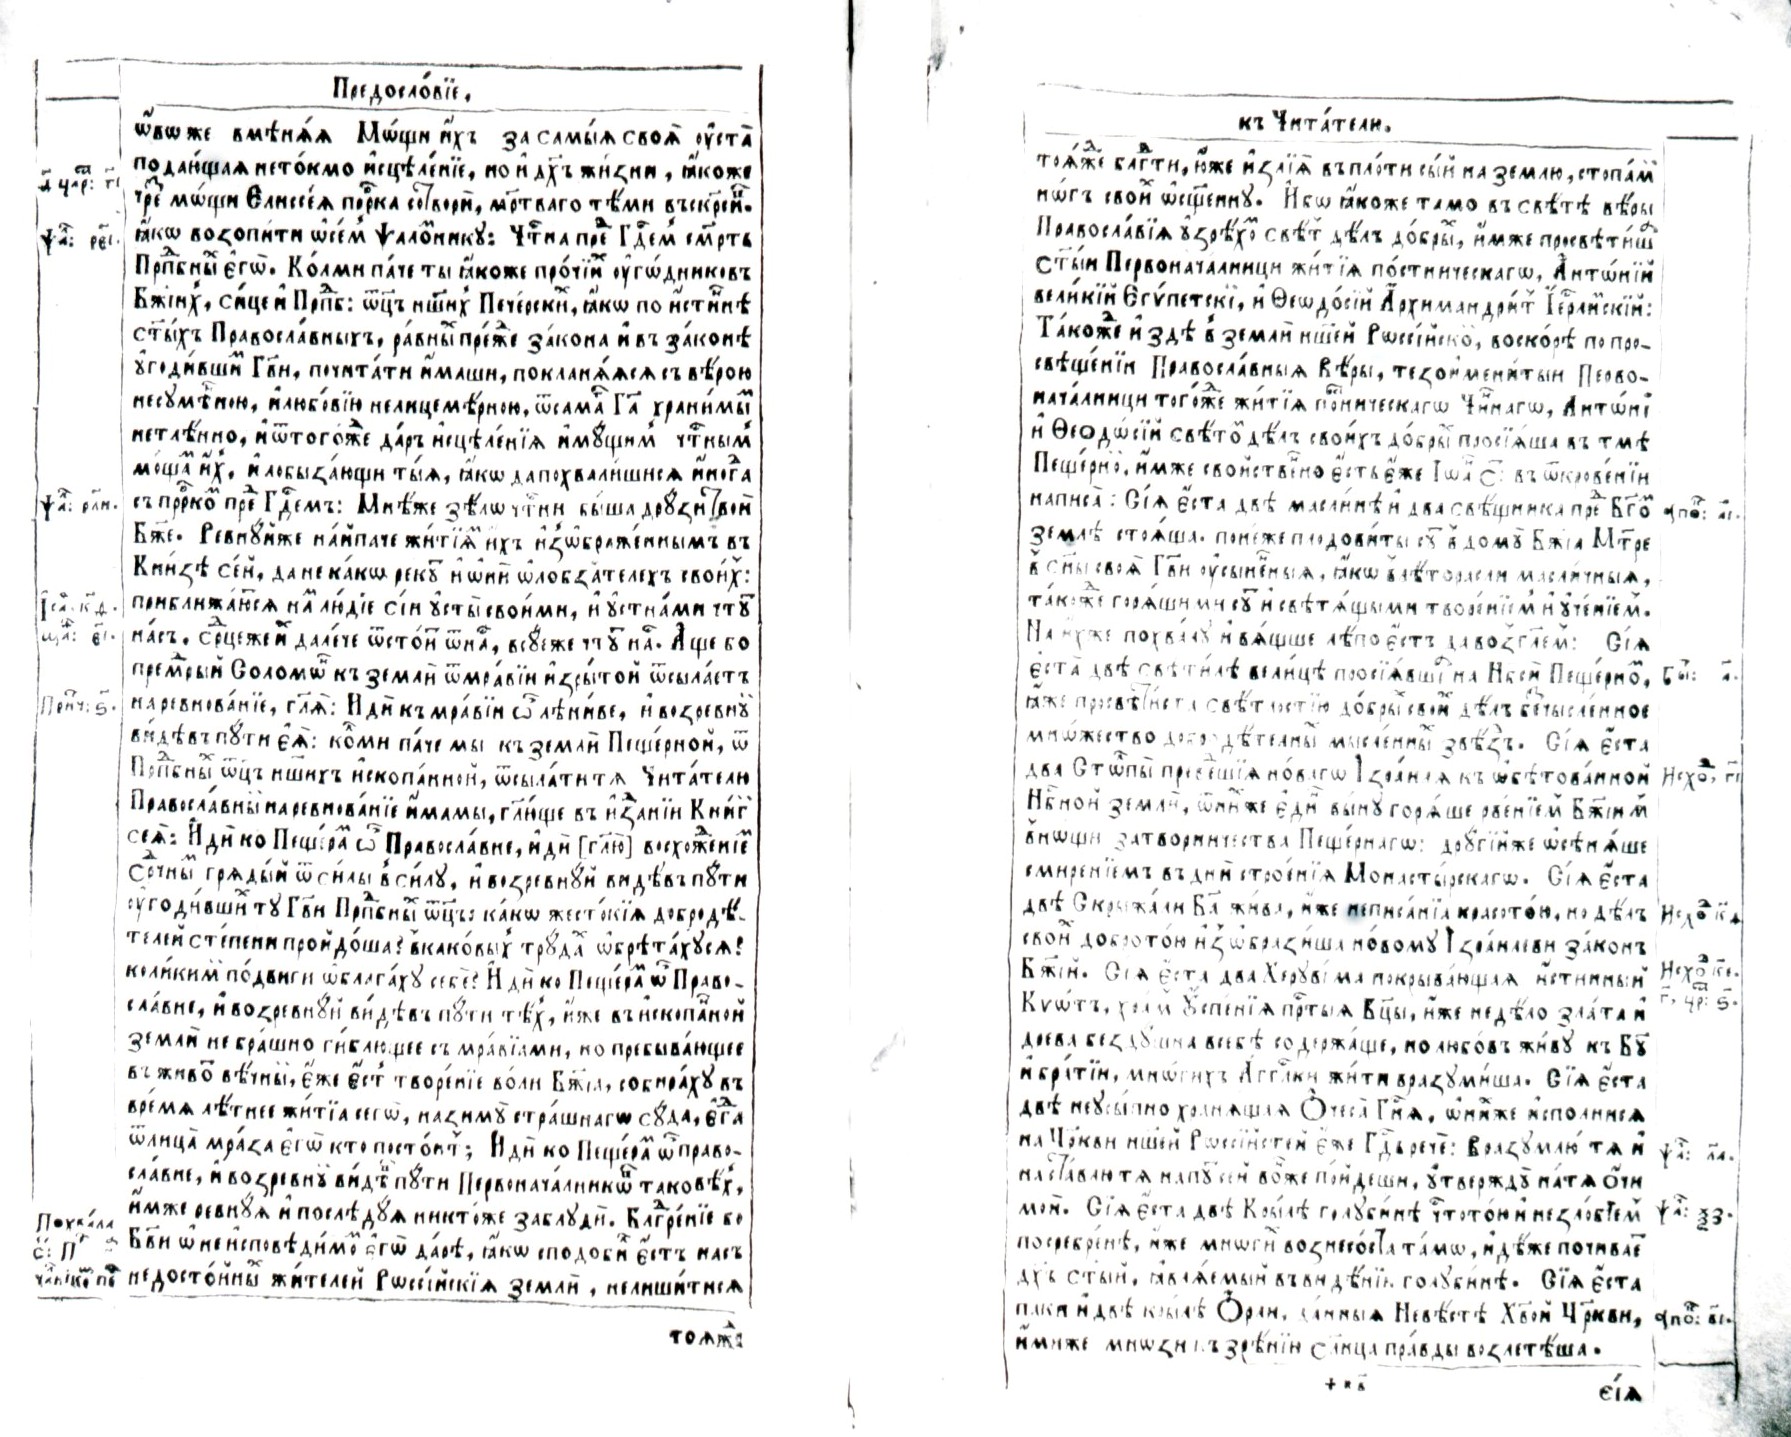 Предосло́вїе,
ѡ҆́вѡже вмѣнѧ́ѧ Мѡ́щи и҆́хъ за самы́ѧ своѧ̀ ѹ҆ста̀
пода́ющаѧ нето́кмо и҆сцѣле́нїе, но и҆ дх҃ъ жи́зни, ꙗ҆́коже
мѡ́щи Елиссе́ѧ прⷪ҇рка сотвори̑, ме́ртваго тѣ́ми
ꙗ҆́кѡ возопи́ти Ѱало́мнику: Чⷭ҇тна преⷣ Гдⷭ҇емъ сме́рть
Прпⷣбныⷯ є҆гѡ̀. Ко́лми па́че ты̀ ꙗ҆́коже про́чїиⷯ ѹ҆го́дникѡвъ
Бж҃їиⷯ, си́це и҆ Прпⷣб: ѻ҆ц҃ъ на́шиⷯ Пече́рскиⷯ, ꙗ҆́кѡ по и҆́стиннѣ
ст҃ы́хъ Правосла́вныхъ, ра́вны пре́жⷣе зако́на и҆ въ зако́нѣ
ѹ҆годи́вшиⷯ Гдⷭ҇ви, почита́ти и҆́маши, покланѧ́ѧсѧ съ вѣ́рою
несꙋмѣ́нною, и҆ любо́вїю нелицемѣ́рною, ѿ самаⷢ҇ Гдⷭ҇а храни́мыⷨ
нетлѣ́нно, и҆ ѿ тогѡ́же да́ръ и҆сцѣле́нїѧ и҆мꙋ́щимъ чⷭ҇тны́мъ
моще́мъ и҆́хъ, и҆ лобыза́ющи ты́ѧ, ꙗ҆́кѡ да похвали́шисѧ и҆ногда̀
съ прⷪ҇ркомъ преⷣ Гдⷭ҇емъ: Мнѣ́же ѕѣлѡ̀ чⷭ҇тни бы́ша дрꙋ́зи Твоѝ
Бж҃е. Ревнꙋ́йже на́йпаче жи́тїѧмъ и҆́хъ и҆зѡбраже́ннымъ въ
Кни́зѣ се́й, да не ка́кѡ рекꙋ́тъ и҆ ѡ҆ни́ ѡ҆ лобза́телехъ свои́хъ:
приближа́ютсѧ на́мъ лю́дїе сі́и ѹ҆сты̀ свои́ми, и҆ ѹ҆стна́ми чтꙋ́тъ
на́съ, срⷣцеже и҆́хъ дале́че ѿстои́тъ ѿ на́съ, всꙋ́еже чтꙋ́тъ на́съ. А҆́ще бо
премⷣрый Соломѡ́нъ къ землѝ ѿ мра́вїи и҆зры́той ѿсыла́етъ
на ревнова́нїе, гл҃ѧ: И҆дѝ къ мра́вїи ѽ лѣни́ве, и҆ возревнꙋ́й
ви́дѣвъ пꙋтѝ є҆ѧ̀: ко́лми па́че мы̀ къ землѝ Пеще́рной, ѿ
Прпⷣбныⷯ ѻ҆ц҃ъ на́шихъ и҆скопа́нной, ѿсыла́ти тѧ̀ Чита́телю
Правосла́вный на ревнова́нїе и҆́мамы, гл҃юще въ и҆зда́нїи Кни́гъ
сеѧ̀: И҆дѝ ко Пеще́рамъ ѽ Правосла́вне, и҆дѝ [гл҃ю] восхожде́нїемъ
Срⷣчныⷨ грѧды́й ѿ си́лы в си́лу, и҆ возревнꙋ́й ви́дѣвъ пꙋтѝ
ѹ҆годи́вшиⷯ тꙋ̀ Гдⷭ҇ви Прпⷣбныⷯ ѻ҆ц҃ъ: ка́кѡ жесто́кїѧ добродѣ́-
телей сте́пени пройдо́ша? в каковы́хъ трꙋдѣⷯ ѡ҆брѣта́хꙋсѧ?
коли́кими по́двиги ѡ҆блага́хꙋ себѐ? И҆дѝ ко Пеще́рамъ ѽ Право-
сла́вне, и҆ возревнꙋ́й ви́дѣвъ пꙋтѝ тѣ́хъ, и҆̀же въ и҆скопа́нной
землѝ не бра́шно ги́блющее съ мра́вїами, но пребыва́ющее
въ живо́тъ вѣ́чный, є҆́же є҆́сть творе́нїе во́ли Бж҃їѧ, собира́хꙋ въ
вре́мѧ лѣ́тнее житїѧ̀ сегѡ̀, на зи́мꙋ стра́шнагѡ сꙋда̀, є҆гда̀
ѿ лица̀ мра́за є҆гѡ̀ кто̀ постои́тъ; И҆дѝ ко Пеще́рамъ ѽ право-
сла́вне, и҆ возревнꙋ́й ви́дѣвъ пꙋтѝ Первонача́лникѡвъ таковы́хъ,
и҆̀мже ревнꙋ́ѧ и҆ послѣ́дꙋѧ никто́же заблꙋди́тъ. Благⷣре́нїе бо
Бг҃ови ѡ҆ неисповѣди́момъ є҆гѡ̀ да́рѣ, ꙗ҆́кѡ сподо́би є҆́сть на́съ
недосто́йныхъ жи́телей Рѡссі́йскїѧ землѝ, нелиши́тисѧ
тоѧ́жⷣе
а҃ цр҃: г҃і
ѱаⷧ: рє҃і.
ѱаⷧ: рл҃и.
І҆са: к҃д.
ѱаⷧ:
При́ч: ѕ҃.
Похвала̀
къ Чита́телю.
тоѧ́жⷣе блгⷣти, ю҆́же и҆злїѧ̀ въ пло́ти сы́й на зе́млю, стопа́мъ
но́гъ свои́хъ ѡ҆сщ҃е́ннꙋ. И҆́бо ꙗ҆́коже та́мо въ свѣ́тѣ вѣ́ры
Правосла́вїѧ ѹ҆зрѣ́хомъ свѣ́тъ дѣ́лъ до́брыхъ, и҆́мже просвѣти́ша
ст҃ы́и Первонача́лници житїѧ̀ по́стническагѡ, А҆нтѡ́нїй
вели́кїй Єгѵ́петскїй, и҆ Ѳеодо́сїй А҆рхимандри́тъ І҆ерⷭ҇ли́мскїй:
Та́кожⷣе и҆ здѣ̀ в землѝ на́шей Рѡссі́йской, вско́рѣ по про-
свѣще́нїи Правосла́вныѧ Вѣ́ры, тезоимени́тыи Перво-
нача́лници тогѡ́жⷣе житїѧ̀ по́стническагѡ Чи́ннагѡ, А҆нтѡ́нїй
и҆ Ѳеодо́сїй свѣ́томъ дѣ́лъ свои́хъ до́брыхъ просїѧ́ша въ тмѣ̀
Пеще́рной, и҆́мже сво́йственно є҆́сть є҆́же І҆ѡа́ннъ С: въ ѿкрове́нїи
написа̀: Сїѧ̑ є҆ста̀ двѣ̀ ма́слинѣ и҆ два̀ свѣ́щника преⷣ Бг҃омъ
землѣ̀ стоѧ́ща. поне́же плодови́ты сꙋ́ть в домꙋ̀ Бж҃їѧ Мт҃ре
в сн҃ы своѧ̑ Гдⷭ҇ви ѹ҆сыне́ныѧ, ꙗ҆́кѡ вѣ́тѡрасли ма́сличныѧ,
та́кожⷣе горѧ́щими сꙋ́ть и҆ свѣтѧ́щыми творе́нїемъ и҆ ѹ҆че́нїемъ.
На и҆́хже похва́лꙋ и҆ вѧ́щше лѣ́по є҆́сть да возгл҃емъ: Сїѧ̑
є҆ста̀ двѣ̀ свѣти́лѣ вели́цѣ просїѧ́вшїи на Нб҃сѝ Пеще́рномъ,
ꙗ҆̀же просвѣти́ста свѣ́тлостїю до́брыхъ свои́хъ дѣ́лъ безчи́сленное
мно́жество доброꙷдѣ́телныхъ мы́сленныхъ ѕвѣ́здъ. Сїѧ̑ є҆ста̀
два̀ Столпы̀ преве́дшїѧ но́вагѡ І҆зра́илѧ къ ѡ҆бѣтова́нной
Нбⷭ҇ной землѝ, ѿ ни́хже є҆ди́нъ вы́нꙋ горѧ́ще рве́нїемъ Бж҃їимъ
в нощѝ затво́рничества Пеще́рнагѡ: дрꙋгі́йже ѡ҆сѣнѧ́ше
смире́нїемъ въ днѝ строе́нїѧ Монасты́рскагѡ. Сїѧ̑ є҆ста̀
двѣ̀ Скрыжа́ли Бг҃а жи́ва, и҆̀же неписа́нїѧ красото́ю, но дѣ́лъ
свои́хъ добро́тою и҆зѡбрази́ша но́вомꙋ І҆зра́илеви зако́нъ
Бж҃їй. Сїѧ̑ є҆ста̀ два̀ Херꙋві́ма покрыва́ющаѧ и҆́стинный
Кивѡ́тъ, хра́мъ Ѹ҆спе́нїѧ прⷭ҇ты́ѧ Бц҃ы, и҆̀же не дѣ́ло зла́та и҆
дре́ва бездꙋ́шна всебѣ̀ содержа́ще, но любо́вь жи́вꙋ къ Бг҃ꙋ
и҆ бра́тїи, мнѡ́гихъ А҆гг҃лски жи́ти вразꙋми́ша. Сїѧ̑ є҆ста̀
двѣ̀ неꙋсы́пно хранѧ́щаѧ Ѻ҆чеса̀ Гдⷭ҇нѧ, ѡ҆ ни́хже и҆спо́лнисѧ
на Цр҃кви на́шей Рѡссі́йстей є҆́же Гдⷭ҇ь речѐ: Вразꙋмлю́ тѧ и҆
наста́влю тѧ на пꙋ́ть се́й во́ньже по́йдеши, ѹ҆твержꙋ̀ на тѧ̀ Ѻ҆́чи
моѝ. Сїѧ̑ є҆ста̀ двѣ̀ Крилѣ̀ голꙋби́нѣ чⷭ҇тото́ю и҆ незло́бїемъ
посребре́нѣ, и҆̀же мнѡ́гихъ вознесо́ста та́мѡ, и҆дѣ́же почива́етъ
дх҃ъ ст҃ы́й, ꙗ҆влѧ́емый въ ви́дѣнїи голꙋби́нѣ. Сїѧ̑ є҆ста̀
па́ки и҆ двѣ̀ крилѣ̀ Ѻ҆́рли, да́нныѧ Невѣ́стѣ Хрⷭ҇то́вой Цр҃кви,
и҆́миже мно́зи къ зрѣ́нїю сл҃нца пра́вды возлетѣ́ша.
сїѧ̑
а҆поⷦ: а҃і.
Бы: а҃.
И҆схо: г҃і
И҆схо: к҃д
И҆схо: к҃е.
г҃, цр҃: ѕ҃.
ѱаⷧ: л҃а.
ѱаⷧ: ѯ҃з.
а҆поⷦ: в҃і.